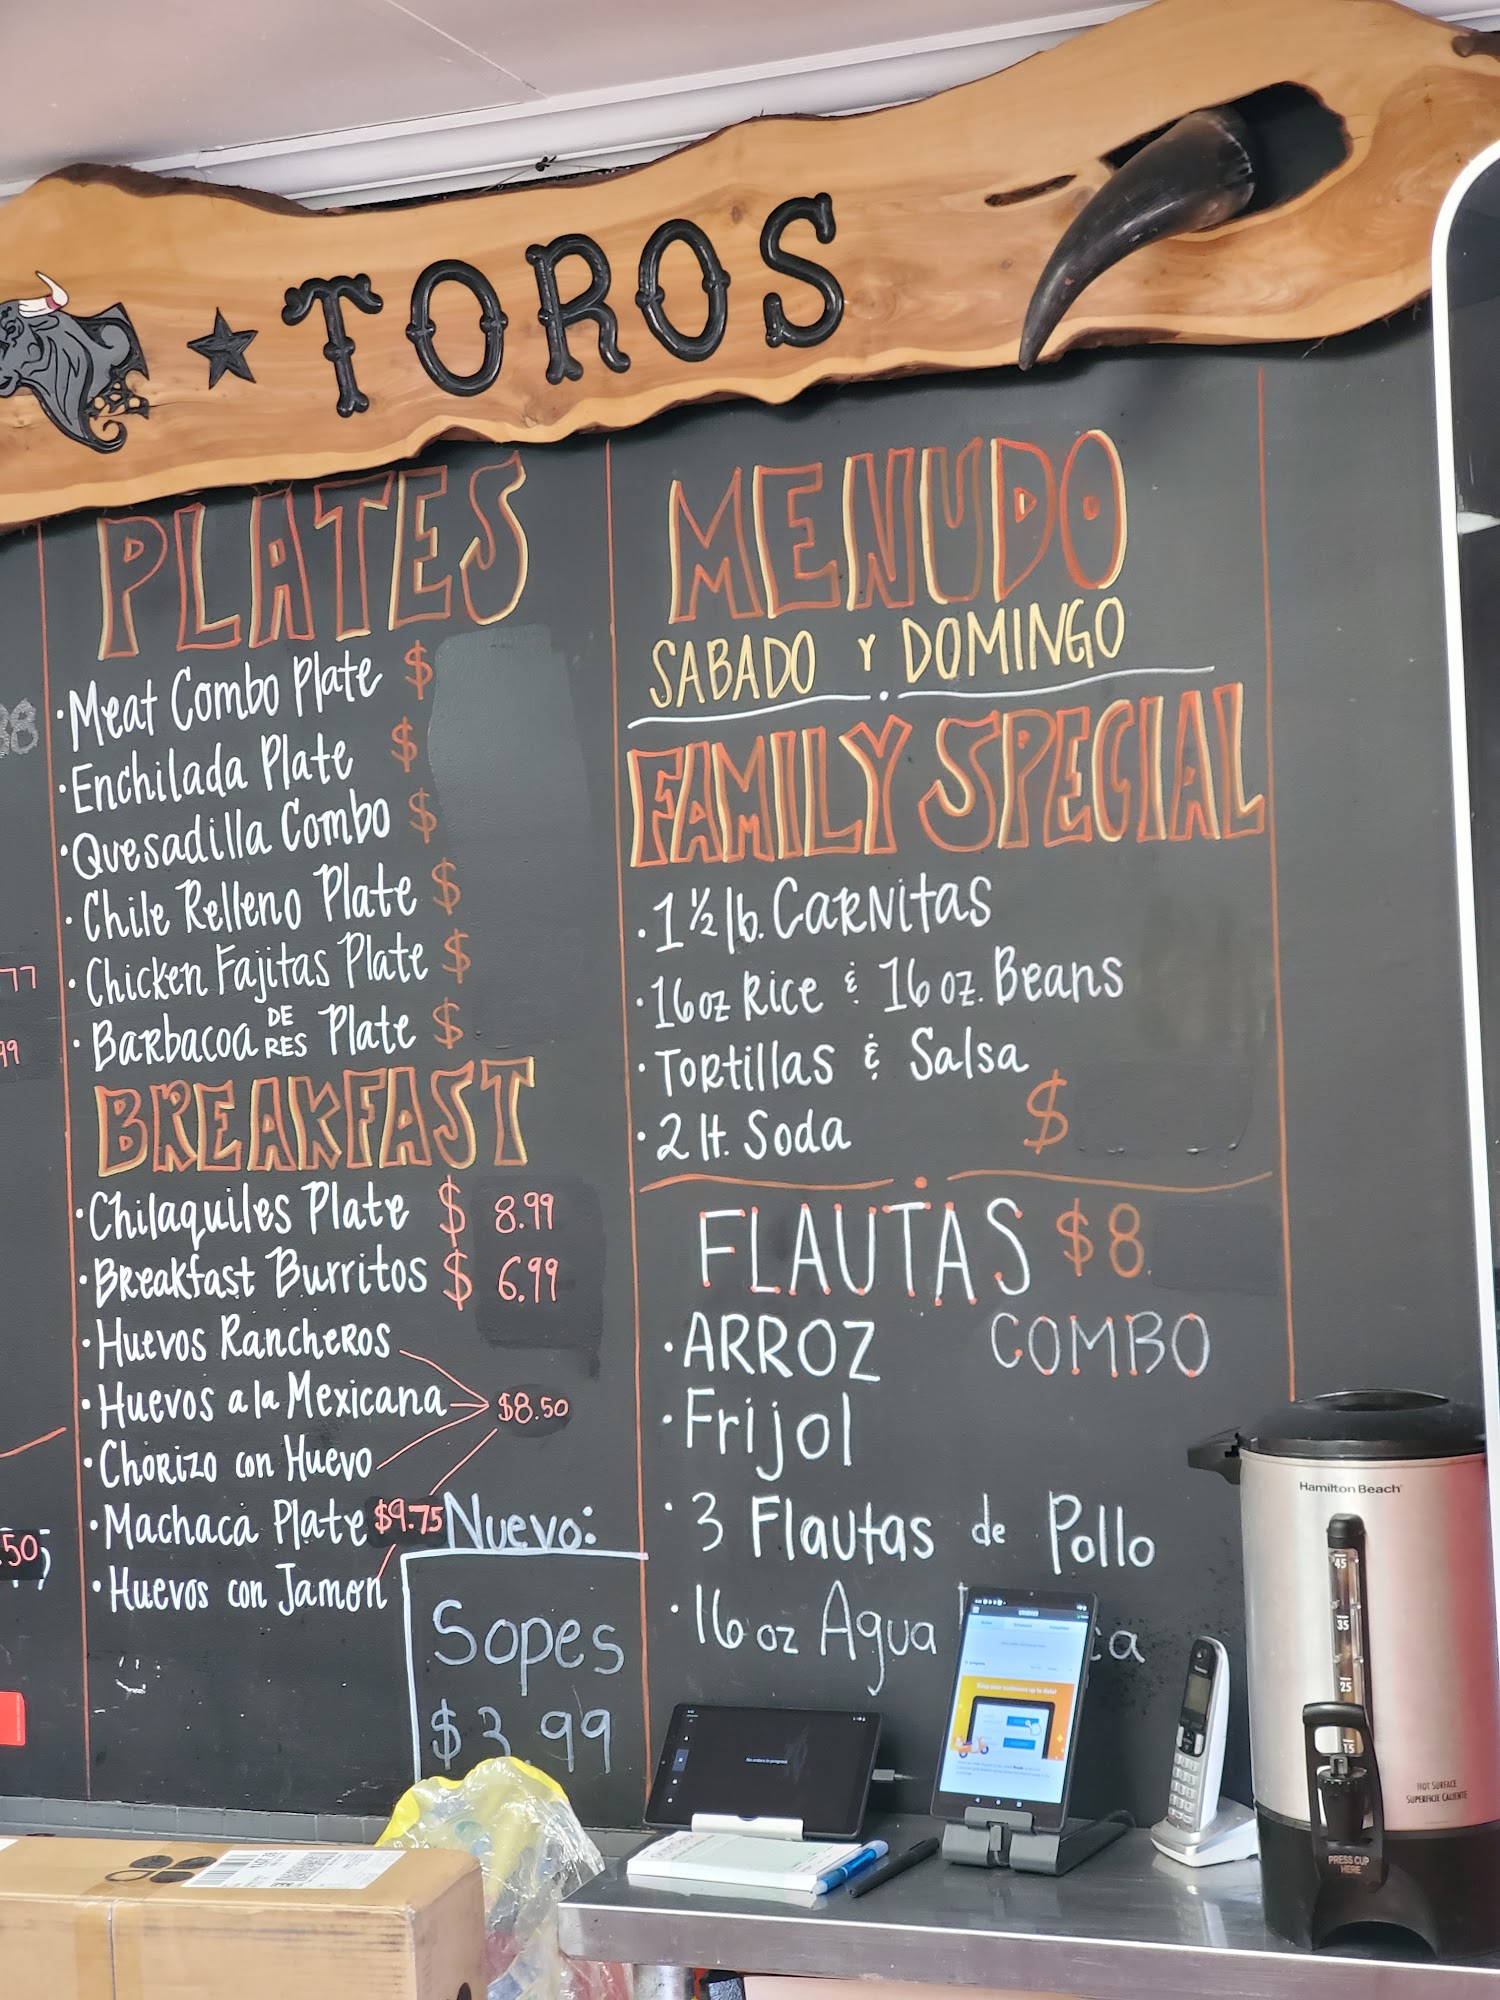 TOROS
PLATES
• Meat Combo Plate $
• Enchilada Plate $
• Quesadilla Combo $
• Chile Relleno Plate $
• Chicken Fajitas Plate $
• Barbacoa DE RES Plate $
BREAKFAST
• Chilaquiles Plate $ 8.99
• Breakfast Burritos $ 6.99
• Huevos Rancheros
• Huevos a la Mexicana $8.50
• Chorizo con Huevo
• Machaca Plate $9.75
• Huevos con Jamon
Nuevo:
Sopes
$3.99
MENUDO
SABADO Y DOMINGO
FAMILY SPECIAL
• 1 ½ lb. Carnitas
• 16oz Rice & 16 oz. Beans
• Tortillas & Salsa
• 2 lt. Soda $
FLAUTAS $8
• ARROZ COMBO
• Frijol
• 3 Flautas de Pollo
• 16 oz Agua
77
99
.50
No orders in progress
Hamilton Beach
45
35
25
15
HOT SURFACE
SUPERFICIE CALIENTE
PRESS CUP
HERE